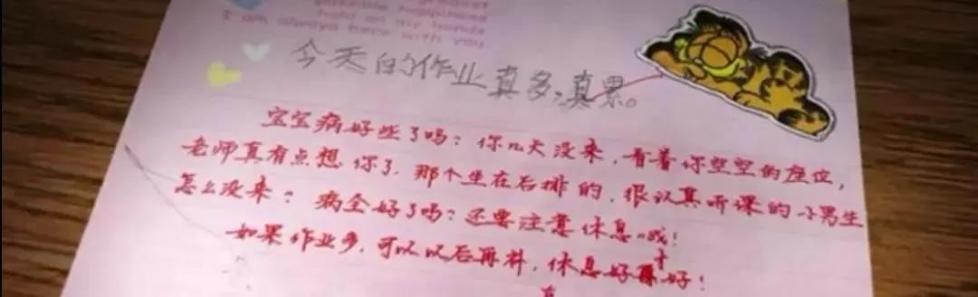 I am always here with you
今天的作业真多,真累。
宝宝病好些了吗?你几天没来,看着你空空的座位,
老师真有点想你了,那个坐在后排的,很认真听课的小男生
怎么没来?病全好了吗?还要注意休息哦!
如果作业多,可以以后再补,休息好才好!